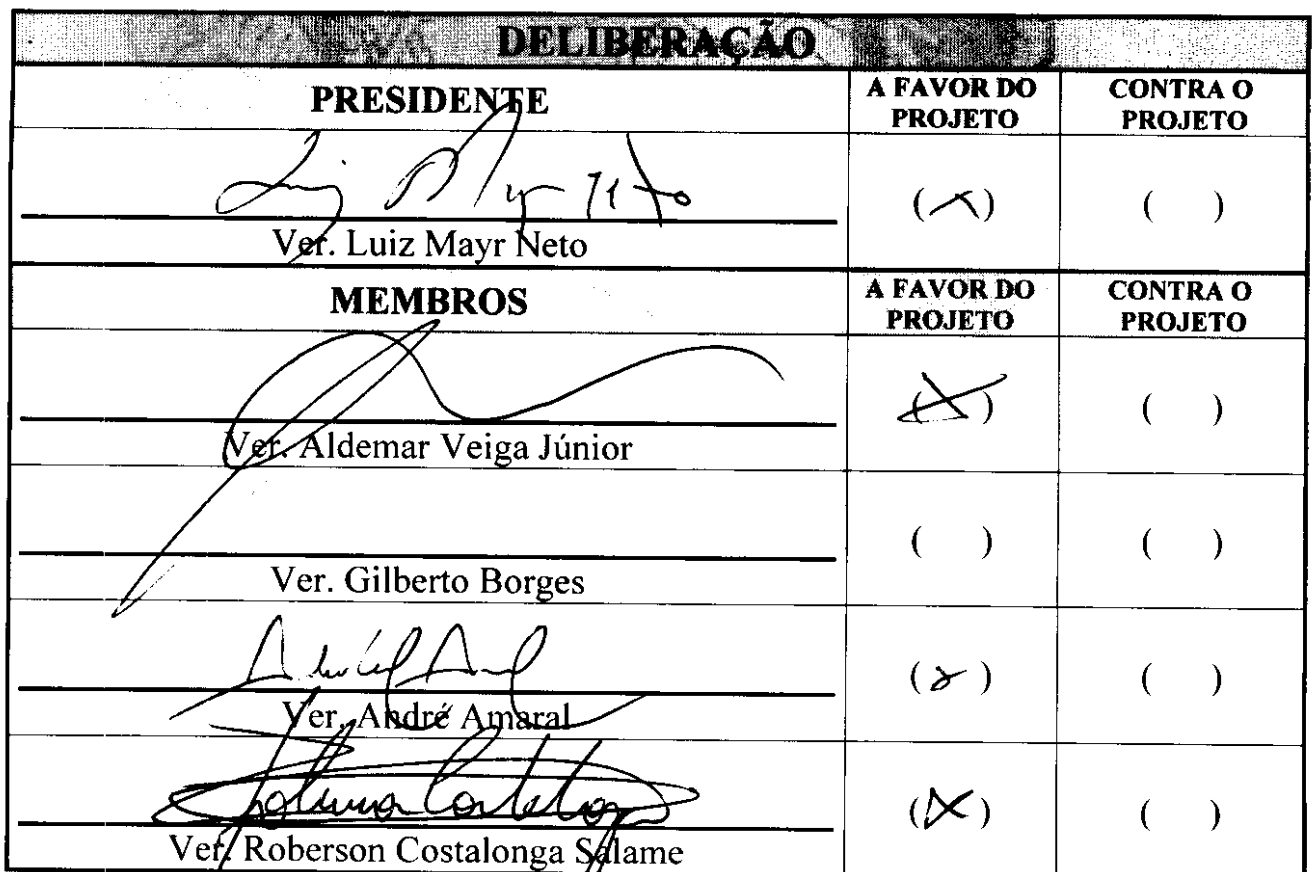 DELIBERAÇÃO
PRESIDENTE
A FAVOR DO PROJETO
CONTRA O PROJETO
Luiz Mayr Neto
( X )
( )
Ver. Luiz Mayr Neto
MEMBROS
A FAVOR DO PROJETO
CONTRA O PROJETO
( X )
( )
Ver. Aldemar Veiga Júnior
( )
( )
Ver. Gilberto Borges
( X )
( )
Ver. André Amaral
( X )
( )
Ver. Roberson Costalonga Salame